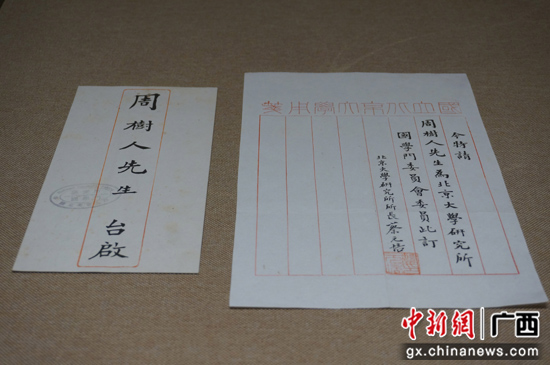 周樹人先生 台啟
國立北京大學用箋
今特請
周樹人先生為北京大學研究所
國學門委員會委員此訂
北京大學研究所所長蔡元培
中新网 广西
gx.chinanews.com